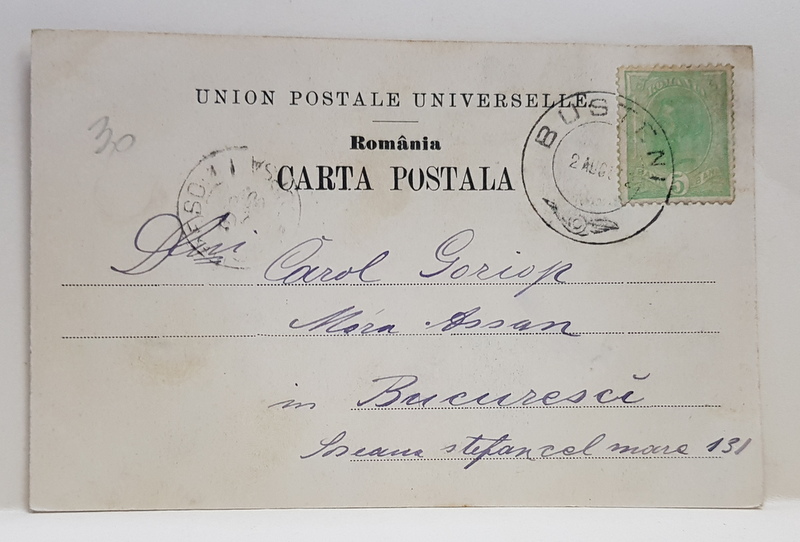 UNION POSTALE UNIVERSELLE
România
CARTA POSTALA
30
BUSTENI
2 AUG
ROMANIA
5
Dlui Carol Goriop
Móra Assan
in Bucuresci
Soseaua stefan cel mare 131